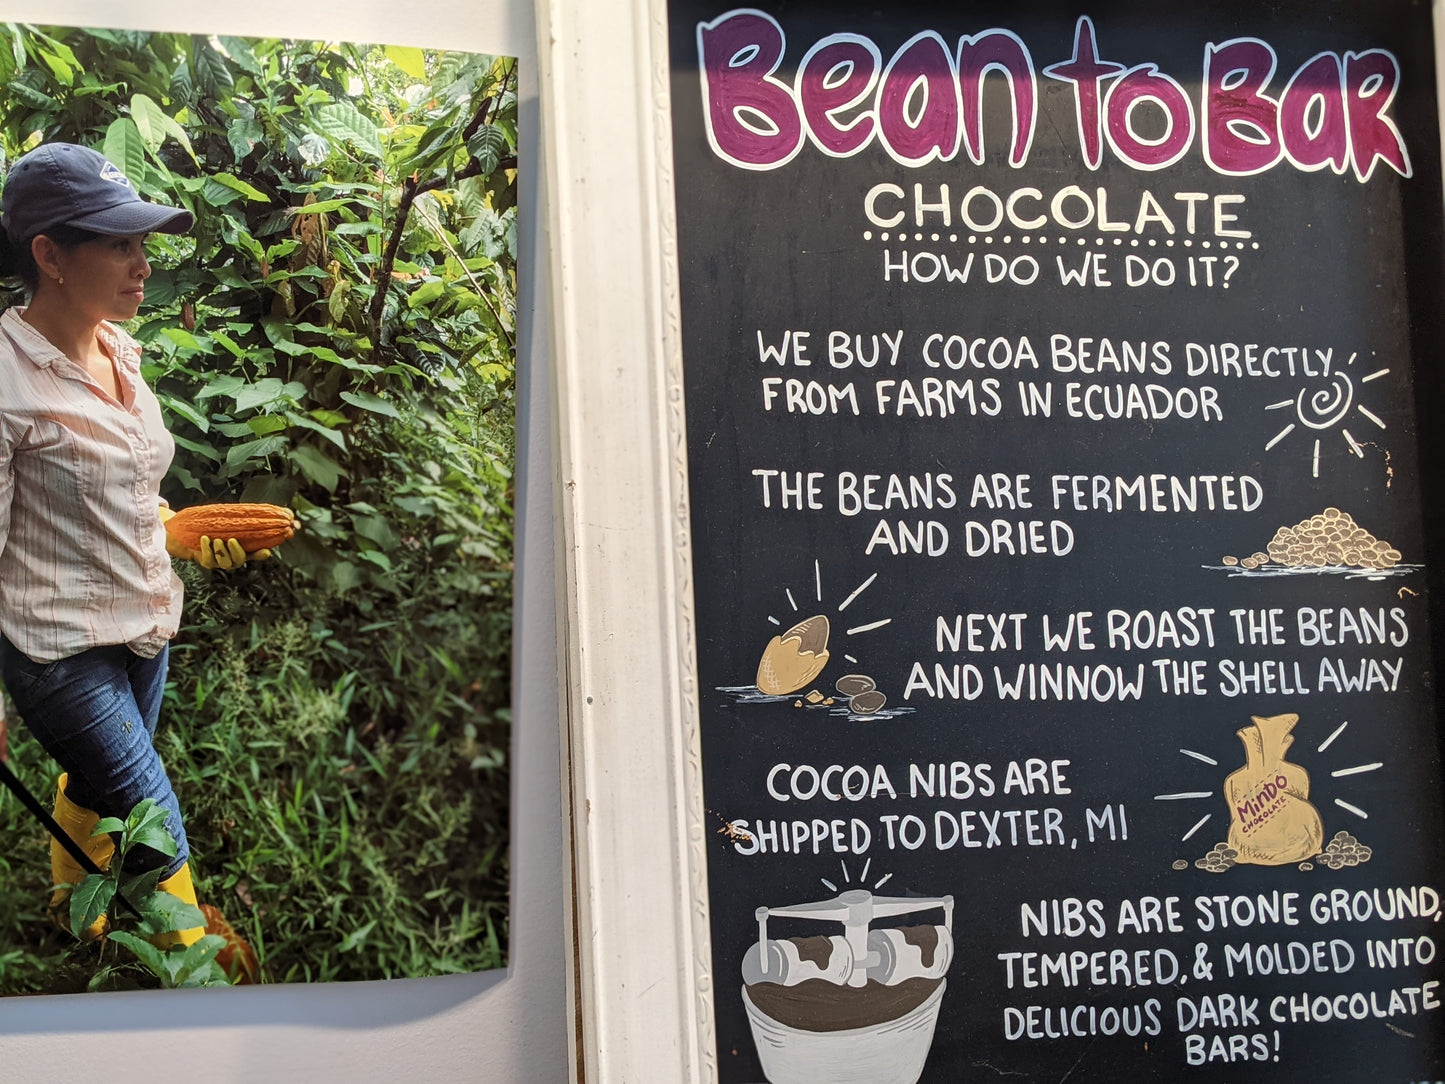 Bean to Bar
CHOCOLATE
HOW DO WE DO IT?
WE BUY COCOA BEANS DIRECTLY
FROM FARMS IN ECUADOR
THE BEANS ARE FERMENTED
AND DRIED
NEXT WE ROAST THE BEANS
AND WINNOW THE SHELL AWAY
COCOA NIBS ARE
SHIPPED TO DEXTER, MI
MINDO
CHOCOLATE
NIBS ARE STONE GROUND,
TEMPERED, & MOLDED INTO
DELICIOUS DARK CHOCOLATE
BARS!